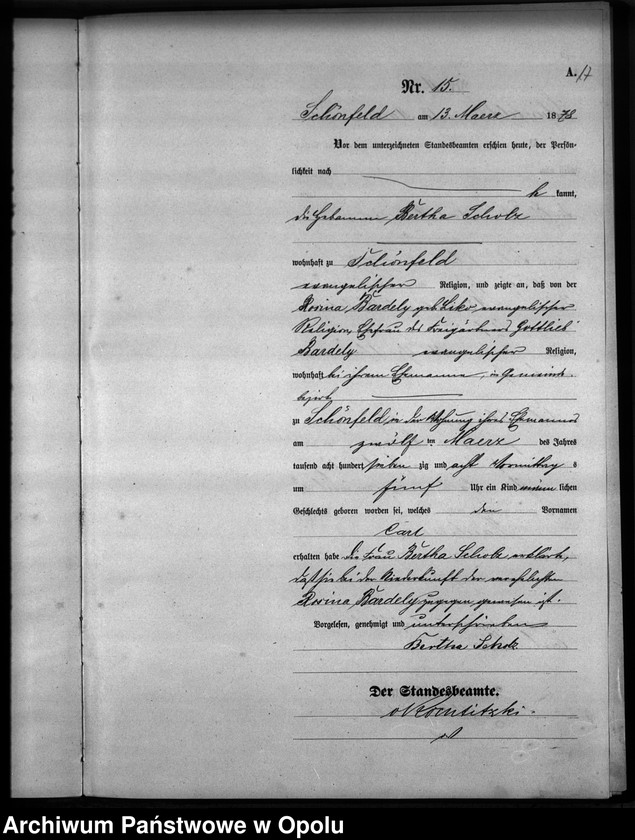 A. 17
Nr. 15.
Schönfeld am 13. Maerz 1878
Vor dem unterzeichneten Standesbeamten erschien heute, der Persön-
lichkeit nach
kannt,
die Hebamme Bertha Scholz
wohnhaft zu Schönfeld
evangelischer Religion, und zeigte an, daß von der
Rosina Bardely geb. evangelischer
Religion, Ehefrau des Freigärtners Gottlieb
Bardely evangelischer Religion,
wohnhaft bei ihrem Ehemanne, im Gemeinde-
bezirk
zu Schönfeld in der Wohnung ihres Ehemannes
am zwölf ten Maerz des Jahres
tausend acht hundert sieben zig und acht Vormittag s
um fünf Uhr ein Kind männ lichen
Geschlechts geboren worden sei, welches den Vornamen
Carl
erhalten habe. die Frau Bertha Scholz erklärte,
daß sie bei der Niederkunft der verehelichten
Rosina Bardely zugegen gewesen ist.
Vorgelesen, genehmigt und unterschrieben
Bertha Scholz
Der Standesbeamte.
Archiwum Państwowe w Opolu